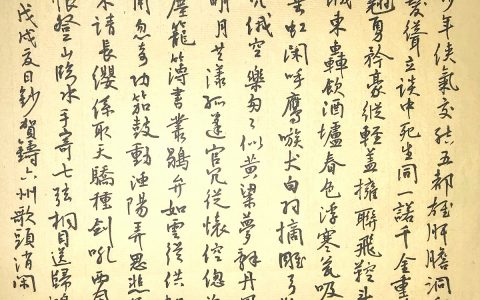 少年侠氣交結五都雄肝膽洞
髮聳立談中死生同一諾千金重
翹勇矜豪縱輕蓋擁聯飛鞚斗
城東轟飲酒壚春色浮寒瓮吸
垂虹闲呼鷹嗾犬白羽摘雕弓
穴俄空樂匆々似黄粱夢辞丹鳳
明月共漾孤蓬官冗從懷倥偬
塵籠簿書叢鶡弁如雲從供粗
用忽奇功笳鼓動漁陽弄思悲
不請長纓係取天驕種劍吼西
恨登山臨水手寄七弦桐目送歸鴻
戊戌夏日鈔賀鑄六州歌頭消闲